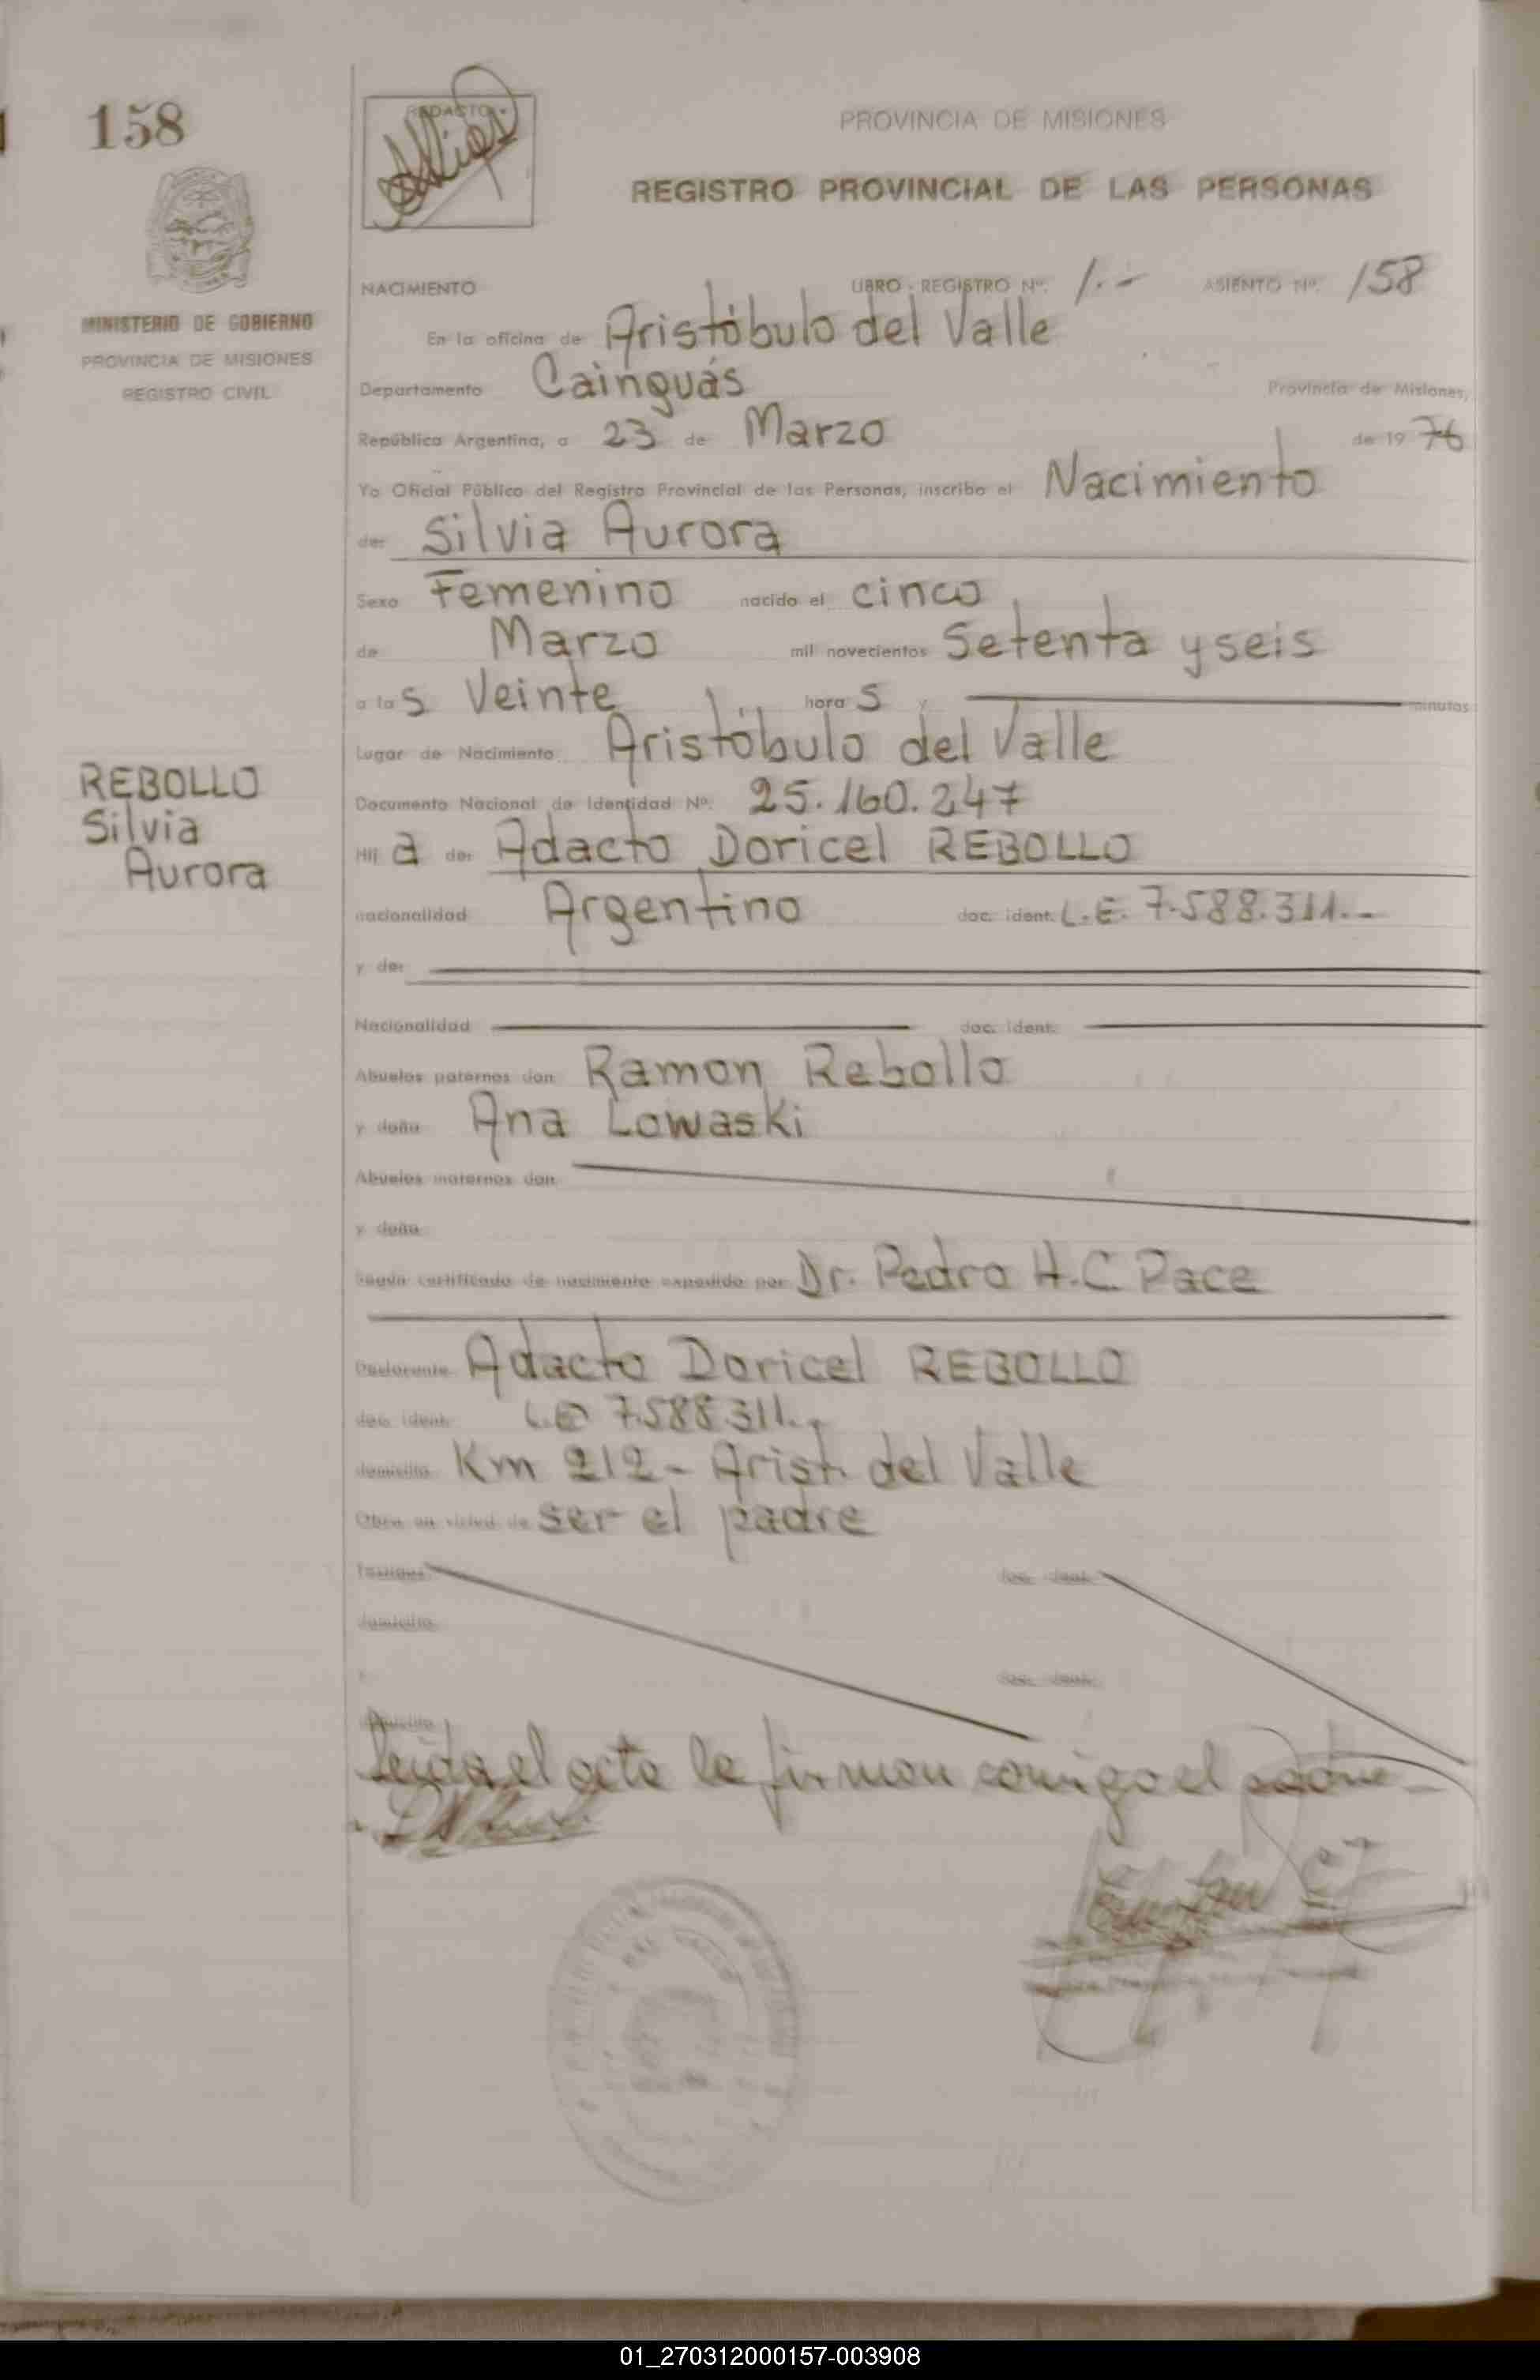 158
MINISTERIO DE GOBIERNO
PROVINCIA DE MISIONES
REGISTRO CIVIL
REBOLLO
Silvia
Aurora
REDACTO
PROVINCIA DE MISIONES
REGISTRO PROVINCIAL DE LAS PERSONAS
NACIMIENTO LIBRO - REGISTRO Nº. 1.- ASIENTO Nº. 158
En la oficina de Aristóbulo del Valle
Departamento Cainguás Provincia de Misiones,
República Argentina, a 23 de Marzo de 19 76
Yo Oficial Público del Registro Provincial de las Personas, inscribo el Nacimiento
de: Silvia Aurora
Sexo Femenino nacido el cinco
de Marzo mil novecientos Setenta y seis
a las Veinte horas y minutos
Lugar de Nacimiento Aristóbulo del Valle
Documento Nacional de Identidad Nº. 25.160.247
Hija de: Adacto Doricel REBOLLO
nacionalidad Argentino doc. ident. L.E. 7.588.311.-
y de:
Nacionalidad doc. ident.
Abuelos paternos don Ramon Rebollo
y doña Ana Lowaski
Abuelos maternos don
y doña
Según certificado de nacimiento expedido por Dr. Pedro H.C. Pace
Declarante Adacto Doricel REBOLLO
doc. ident. L.E 7.588.311.-
domicilio Km 212- Arist. del Valle
Obra en virtud de ser el padre
Testigos doc. ident.
domicilio
doc. ident.
domicilio
Leida el acta la firman conmigo el padre.-
01_270312000157-003908